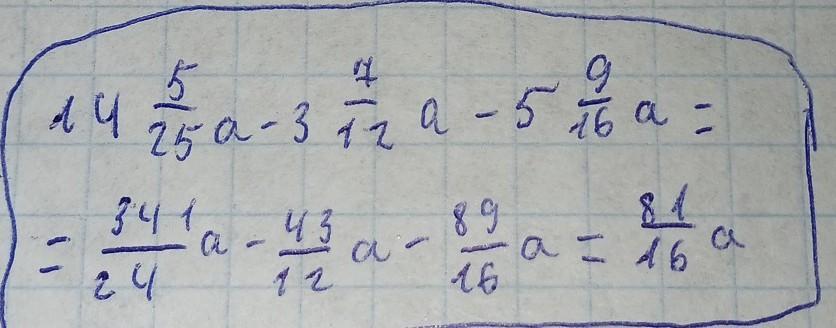 14 5/25 a - 3 7/12 a - 5 9/16 a =
= 341/24 a - 43/12 a - 89/16 a = 81/16 a